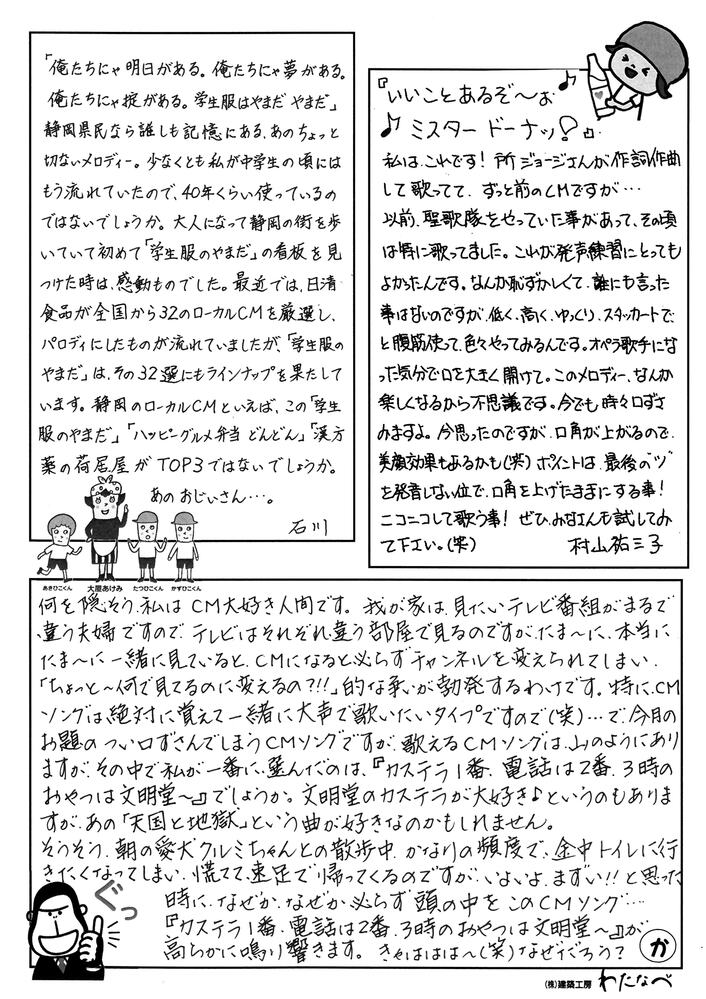 「俺たちにゃ明日がある。俺たちにゃ夢がある。
俺たちにゃ掟がある。学生服はやまだ やまだ」
静岡県民なら誰しも記憶にある、あのちょっと
切ないメロディー。少なくとも私が中学生の頃には
もう流れていたので、40年くらい使っているの
ではないでしょうか。大人になって静岡の街を歩
いていて初めて「学生服のやまだ」の看板を見
つけた時は、感動ものでした。最近では、日清
食品が全国から32のローカルCMを厳選し、
パロディにしたものが流れていましたが、「学生服の
やまだ」は、その32選にもラインナップを果たして
います。静岡のローカルCMといえば、この「学生
服のやまだ」「ハッピーグルメ弁当 どんどん」「漢方
薬の荷居屋がTOP3ではないでしょうか。
あの おじぃさん…。
石川
あきひこくん 大屋あけみ たつひこくん かずひこくん
『いいことあるぞ〜お
♪ミスタードーナッ!』
私は、これです! 所ジョージさんが作詞作曲
して歌ってて、ずっと前のCMですが…
以前、聖歌隊をやっていた事があって、その頃
は特に歌ってました。これが発声練習にとっても
よかったんです。なんか恥ずかしくて、誰にも言った
事はないのですが、低く、高く、ゆっくり、スタッカートで、
と腹筋使って、色々やってみるんです。オペラ歌手にな
った気分で口を大きく開けて。このメロディー、なんか
楽しくなるから不思議です。今でも時々口ずさ
みますよ。今思ったのですが、口角が上がるので、
美顔効果もあるかも(笑) ポイントは、最後の"ツ"
を発音しない位で、口角を上げたままにする事!
ニコニコして歌う事! ぜひ、みなさんも試してみ
て下さい。(笑) 村山祐三子
何を隠そう、私はCM大好き人間です。我が家は、見たいテレビ番組がまるで
違う夫婦ですので、テレビはそれぞれ違う部屋で見るのですが、たま〜に、本当に
たま〜に一緒に見ていると、CMになると必らずチャンネルを変えられてしまい、
「ちょっと〜何で見てるのに変えるの?!!」的な争いが勃発するわけです。特に、CM
ソングは絶対に覚えて一緒に大声で歌いたいタイプですので(笑)…で、今月の
お題の つい口ずさんでしまうCMソングですが、歌えるCMソングは、山のようにあり
ますが、その中で私が一番に選んだのは、『カステラ1番、電話は2番、3時の
おやつは文明堂〜』でしょうか。文明堂のカステラが大好き♪というのもありま
すが、あの「天国と地獄」という曲が好きなのかもしれません。
そうそう、朝の愛犬クルミちゃんとの散歩中、かなりの頻度で、途中トイレに行
きたくなってしまい、慌てて、速足で帰ってくるのですが、いよいよ、まずい!!と思った
時に、なぜか、なぜか、必らず頭の中をこのCMソング…
『カステラ1番、電話は2番、3時のおやつは文明堂〜』が
高らかに鳴り響きます。きゃはははは〜(笑)なぜだろう? か
ぐっ
(株)建築工房 わたなべ